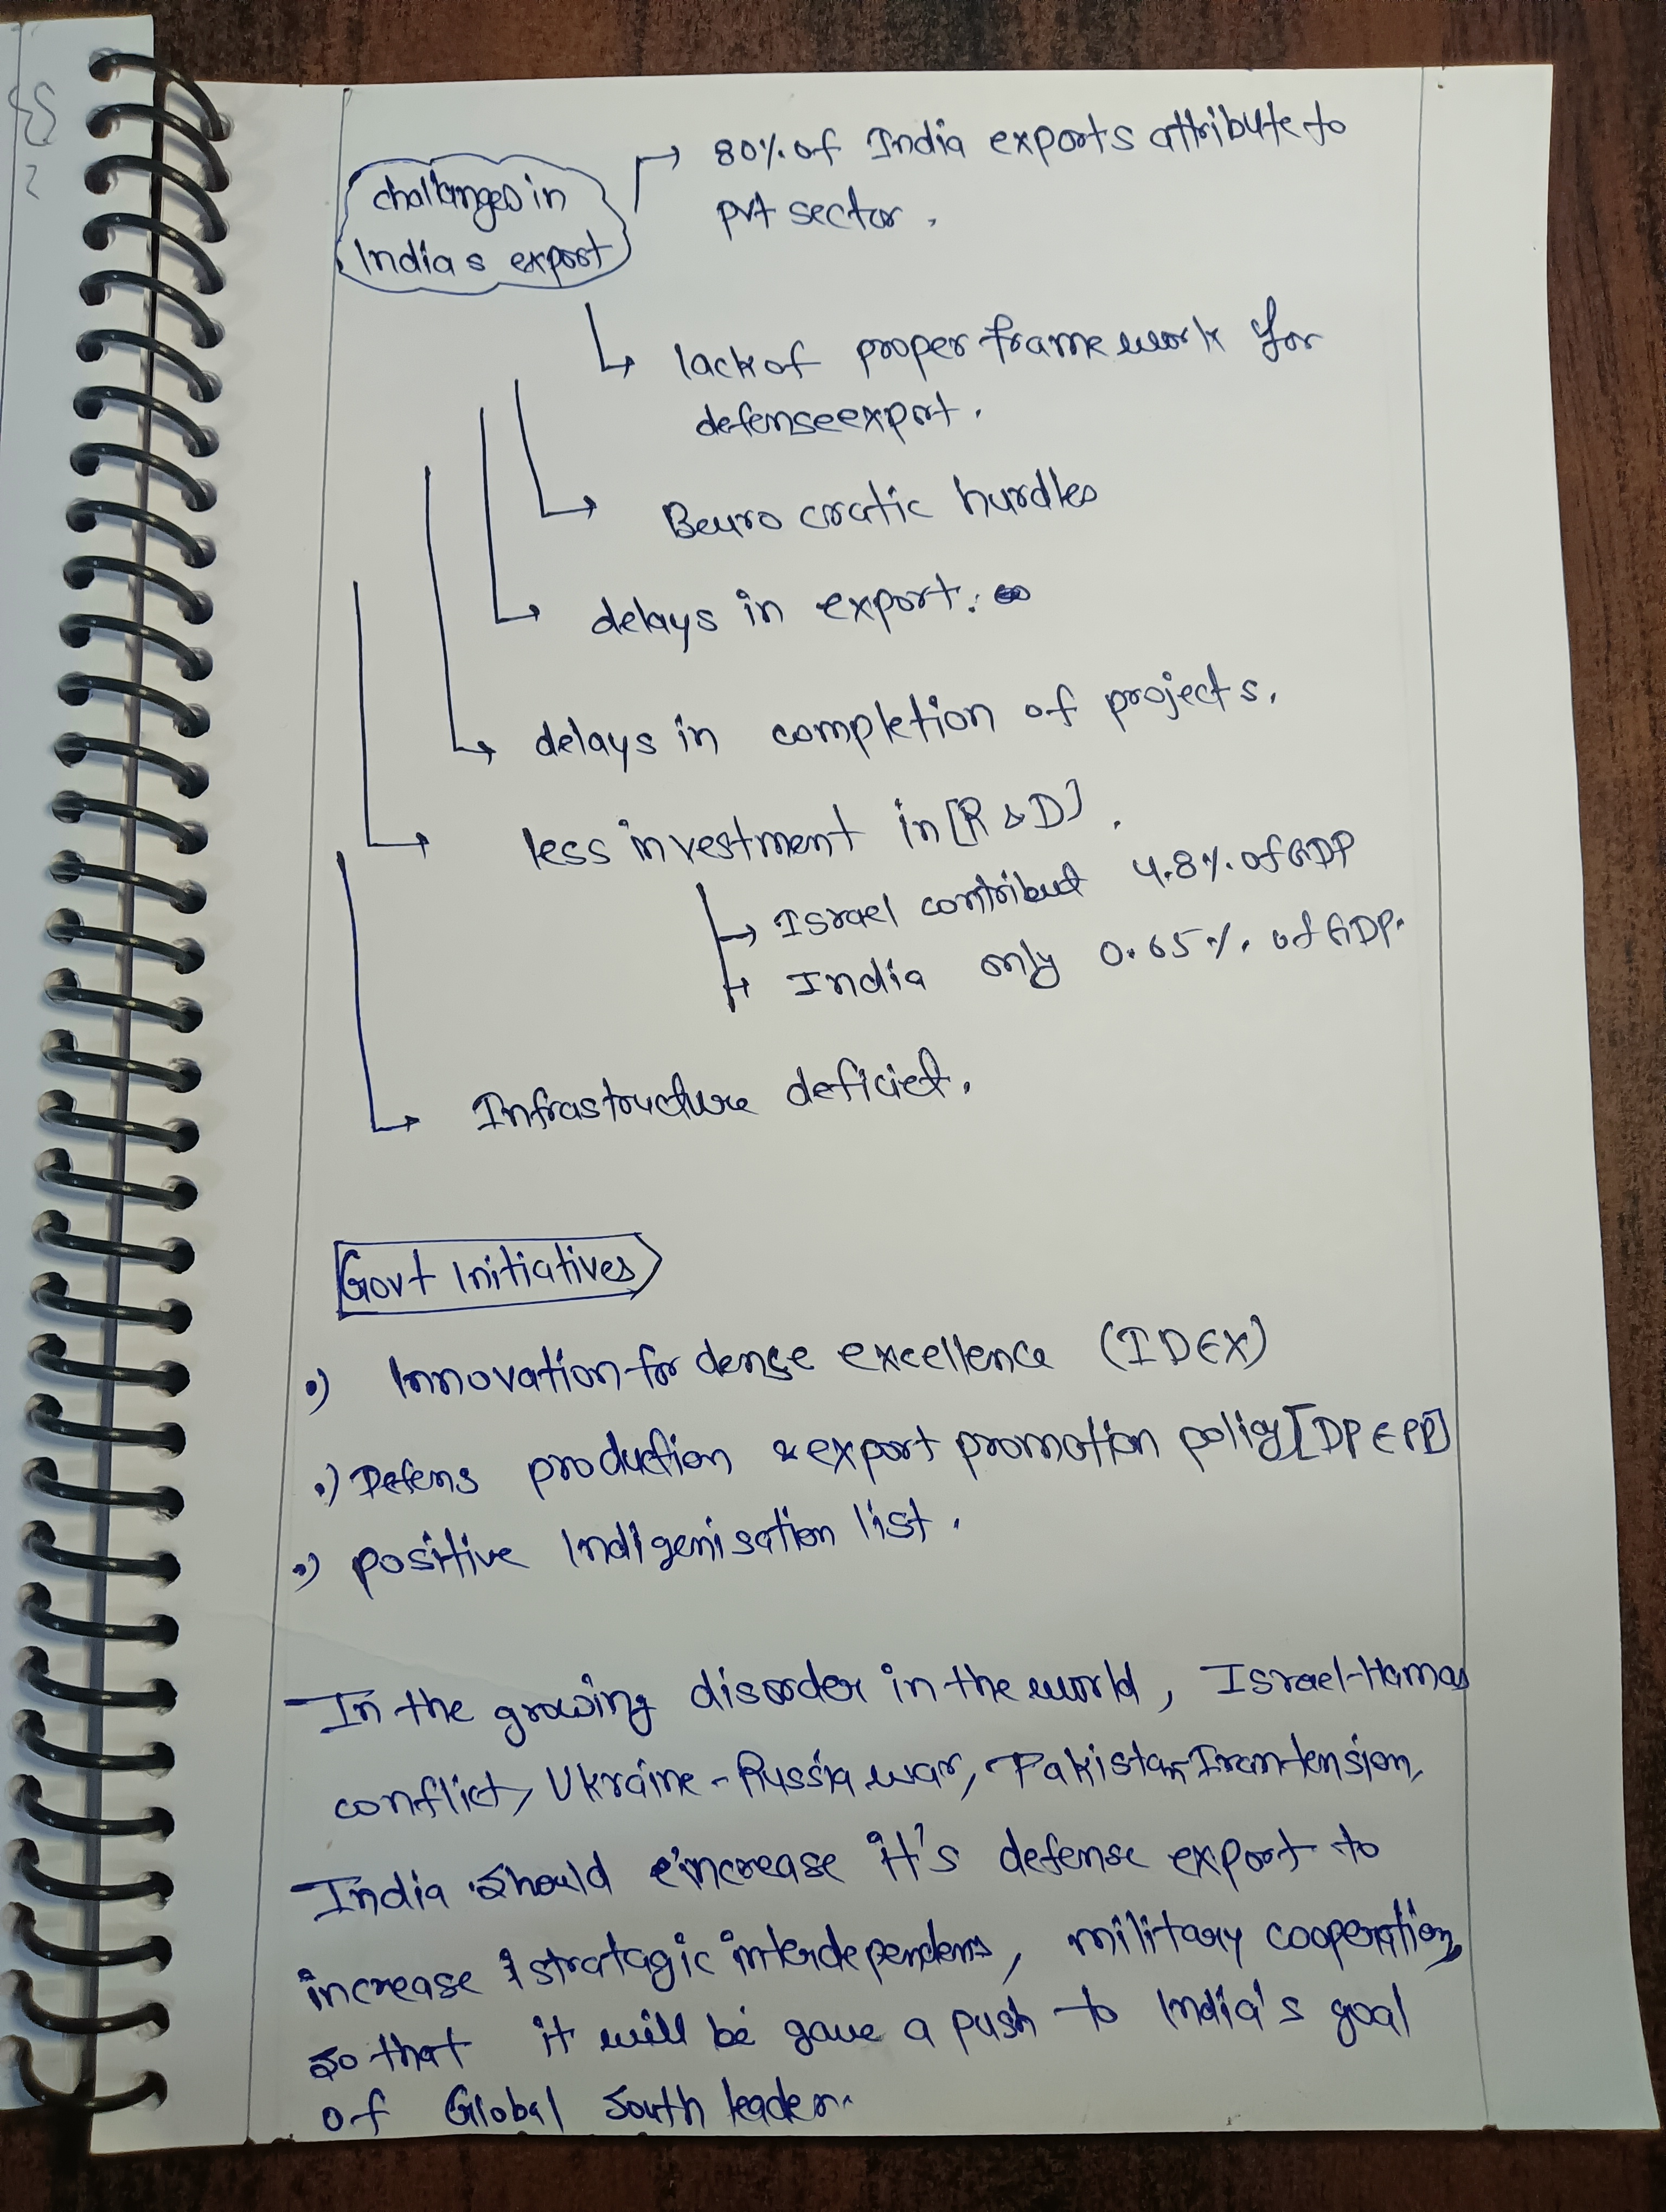 challanges in
India s export
80% of India exports attribute to
pvt sector.
lack of proper frame work for
defense export.
Beuro cratic hurdles
delays in export.
delays in completion of projects.
less investment in [R & D].
Israel contribut 4.8% of GDP
India only 0.65% of GDP.
Infrastructure deficiet.
Govt Initiatives
Innovation for dense excellence (IDEX)
Defens production & export promotion policy [DPEPP]
positive Indigenisation list.
In the growing disorder in the world, Israel-Hamas
conflict, Ukraine-Russia war, Pakistan-Iran tension,
India should increase it's defense export to
increase stratagic interdependens, military cooperation,
so that it will be gave a push to India's goal
of Global South leader.